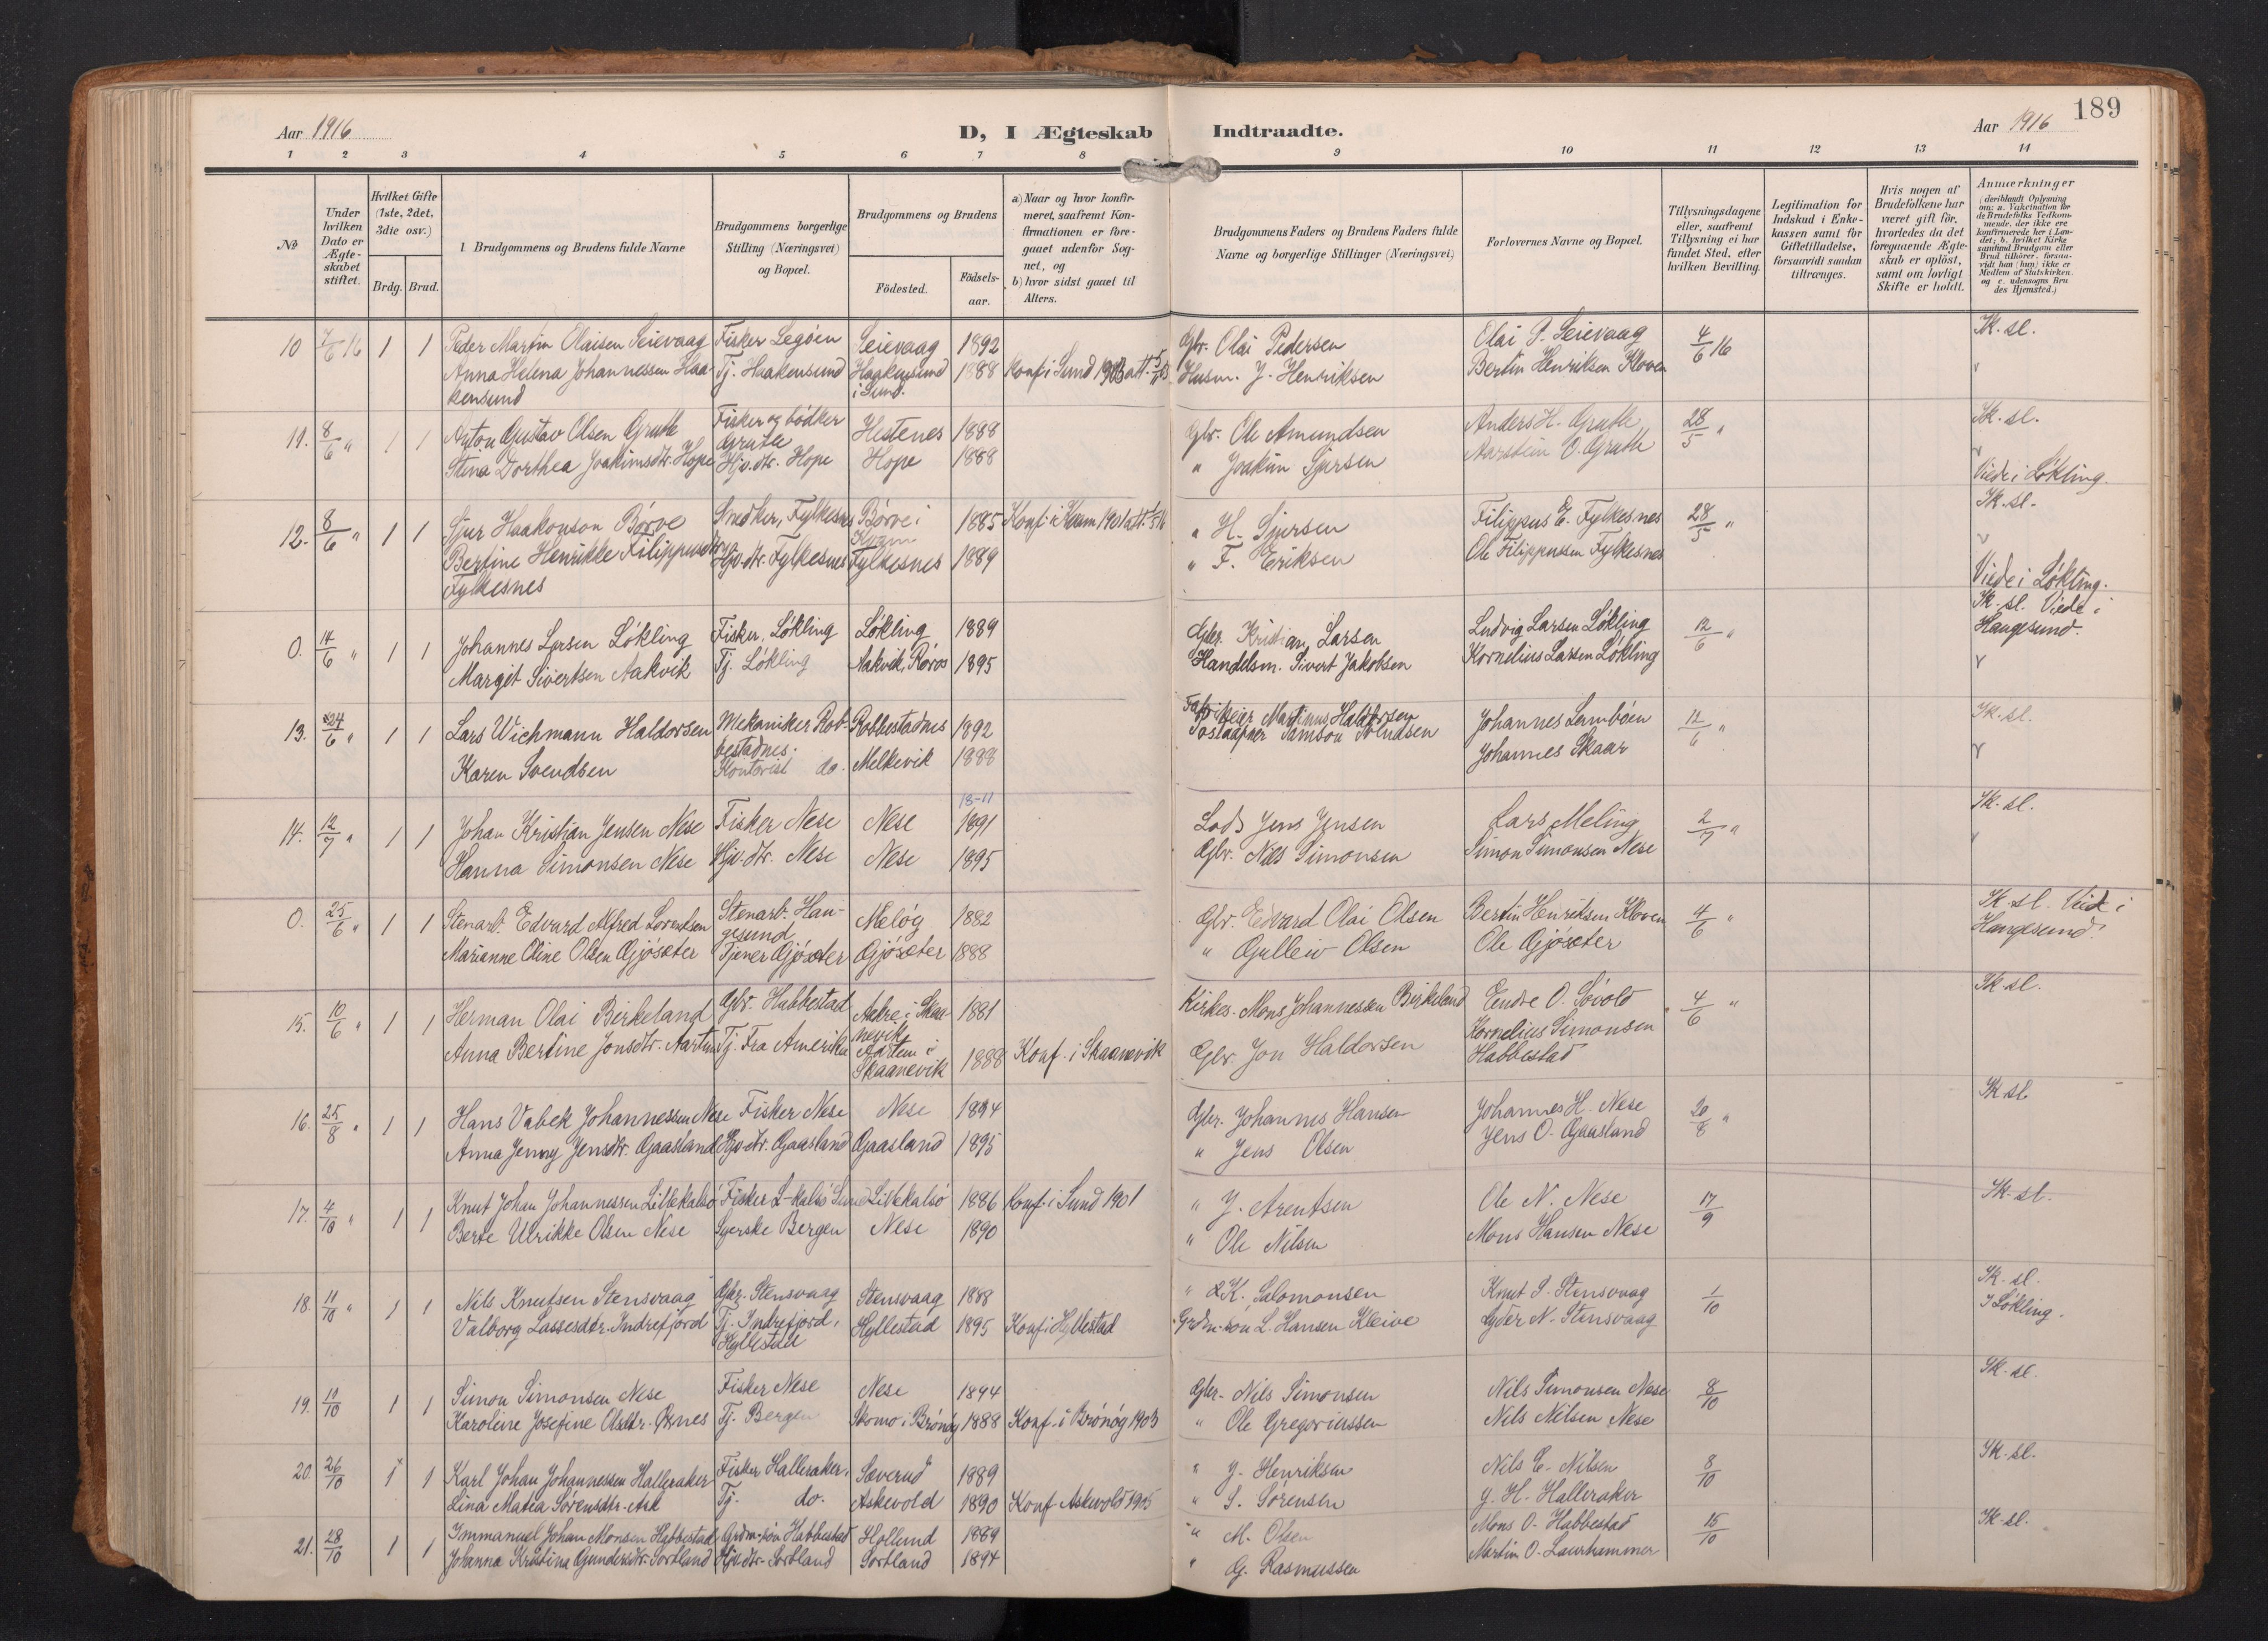 Aar 1916
D, I Ægteskab Indtraadte.
Aar 1916
189
1 2 3 4 5 6 7 8 9 10 11 12 13 14
No
Under hvilken Dato er Ægteskabet stiftet.
Hvilket Gifte (1ste, 2det, 3die osv.)
Brdg. Brud.
1 Brudgommens og Brudens fulde Navne
Brudgommens borgerlige Stilling (Næringsvei) og Bopæl.
Brudgommens og Brudens
Födested.
Födsels-aar.
a) Naar og hvor konfirmeret, saafremt Konfirmationen er foregaaet udenfor Sognet, og
b) hvor sidst gaaet til Alters.
Brudgommens Faders og Brudens Faders fulde Navne og borgerlige Stillinger (Næringsvei)
Forlovernes Navne og Bopæl.
Tillysningsdagene eller, saafremt Tillysning ei har fundet Sted, efter hvilken Bevilling.
Legitimation for Indskud i Enkekassen samt for Giftetilladelse, forsaavidt saadan tiltrænges.
Hvis nogen af Brudefolkene har været gift för, hvorledes da det foregaaende Ægteskab er oplöst, samt om lovligt Skifte er holdt.
Anmærkninger (deriblandt Oplysning om: a. Vakcination for de Brudefolks Vedkommende, der ikke ere konfirmerede her i Landet; b. hvilket Kirkesamfund Brudgom eller Brud tilhörer, forsaavidt han (hun) ikke er Medlem af Statskirken, og c. udensogns Brudes Hjemsted.)
10 7/6 16 1 1 Peder Martin Olaisen Seievaag Fisker Legöen Seievaag 1892 Gbr. Olai Pedersen Olai P. Seievaag 4/6 16 Sk. sl.
Anna Helena Johannessen Haa- Tj. Haakensund Haakensund 1888 Konf i Sund 1903 Husm. J. Henriksen Bertin Henriksen Kloven
kensund i Sund.
11. 8/6 " 1 1 Anton Gustav Olsen Gruth Fisker og bödker Hestenes 1888 Gbr. Ole Amundsen Anders H. Gruth 28/5 " Sk. sl.
Gruth
Stina Dorthea Joakimsdtr. Hope Hjv. dtr. Hope Hope 1888 " Joakim Sjursen Aarstein O. Gruth
Viede i Lökling.
12. 8/6 " 1 1 Sjur Haakonson Börve Snedker, Fylkesnes Börve i 1885 Konf. i Kvam 1901 " H. Sjursen Filippus E. Fylkesnes 28/5 " Sk. sl.
Kvam
Bertine Henrikke Filippusdtr. Hjv. dtr. Fylkesnes Fylkesnes 1889 " F. Eriksen Ole Filippussen Fylkesnes
Fylkesnes
Viede i Lökling.
0. 14/6 " 1 1 Johannes Larsen Lökling Fisker, Lökling Lökling 1889 Gbr. Kristian Larsen Ludvig Larsen Lökling 12/6 " Sk. sl. Viede i
Haugesund.
Margit Sivertsen Aakvik Tj. Lökling Aakvik, Röros 1895 Handelsm. Sivert Jakobsen Kornelius Larsen Lökling
13. 24/6 " 1 1 Lars Wichmann Haldorsen Mekaniker Rob- Robbestadnes 1892 Fabrikeier Martinus Haldorsen Johannes Lambøen 12/6 " Sk. sl.
bestadnes.
Karen Svendsen Kontorist do. Melkevik 1888 Postaapner Samson Svendsen Johannes Skaar
18-11
14. 12/7 " 1 1 Johan Kristian Jensen Nese Fisker Nese Nese 1891 Lods Jens Jensen Lars Meling 2/7 " Sk. sl.
Hanna Simonsen Nese Hjv. dtr. Nese Nese 1895 Gbr. Nils Simonsen Simon Simonsen Nese
0. 25/6 " 1 1 Stenarb. Edvard Alfred Lorentsen Stenarb. Hau- Melöy 1882 Gbr. Edvard Olai Olsen Bertin Henriksen Kloven 4/6 " Sk. sl. Vied i
gesund Haugesund.
Marianne Oline Olsen Gjösæter Tjener Gjösæter Gjösæter 1888 " Gulleiv Olsen Ole Gjösæter
15. 10/6 " 1 1 Herman Olai Birkeland Gbr. Habbestad Aakre i Skaa- 1881 Kirkes. Mons Johannessen Birkeland Endre O. Sövold 4/6 " Sk. sl.
nevik
Anna Bertine Jonsdtr. Aartun Tj. Fra Amerika Aartun i Skaanevik 1888 Konf. i Skaanevik Gbr. Jon Haldorsen Kornelius Simonsen Habbestad
16. 25/8 " 1 1 Hans Vabek Johannessen Nese Fisker Nese Nese 1894 Gbr. Johannes Hansen Johannes H. Nese 20/8 " Sk. sl.
Anna Jenny Jensdtr. Gaasland Hjv. dtr. Gaasland Gaasland 1895 " Jens Olsen Jens O. Gaasland
17. 4/10 " 1 1 Knut Johan Johannessen Lillekalsö Fisker L-kalsö Sund Lillekalsö 1886 Konf. i Sund 1901 " J. Arentsen Ole N. Nese 17/9 Sk. sl.
Berte Ulrikke Olsen Nese Syerske Bergen Nese 1890 " Ole Nilsen Mons Hansen Nese
18. 11/10 " 1 1 Nils Knutsen Stensvaag Gbr. Stensvaag Stensvaag 1888 " K. Salomonsen Knut S. Stensvaag 1/10 Sk. sl.
I Lökling.
Valborg Lassesdtr. Indrefjord Tj. Indrefjord, Hyllestad 1895 Konf i Hyllestad Grdm.sön L. Hansen Kleive Lyder N. Stensvaag
Hyllestad
19. 11/10 1 1 Simon Simonsen Nese Fisker Nese Nese 1894 Gbr. Nils Simonsen Nils Simonsen Nese 8/10 Sk. sl.
Karoline Josefine Olsdtr. Tj. Bergen Skomo i Brönöy 1888 Konf. i Brönöy 1903 " Ole Gregoriussen Nils Nilsen Nese
20. 26/10 1 1 Karl Johan Johannessen Halleraker Fisker Halleraker. Sæverud 1889 " J. Henriksen Nils E. Nilsen 8/10 Sk. sl.
Lina Matea Sörensdtr. Ask Tj. do. Askevold 1890 Konf Askevold 1905 " S. Sörensen J. H. Halleraker
21. 28/10 1 1 Immanuel Johan Monsen Habbestad Grdm.sön Habbestad Hollund 1889 " M. Olsen Mons O. Habbestad 15/10 Sk. sl.
Johanna Kristina Gundersdtr. Sortland Hjv. dtr. Sortland Sortland 1894 " G. Rasmussen Martin O. Laurhammer